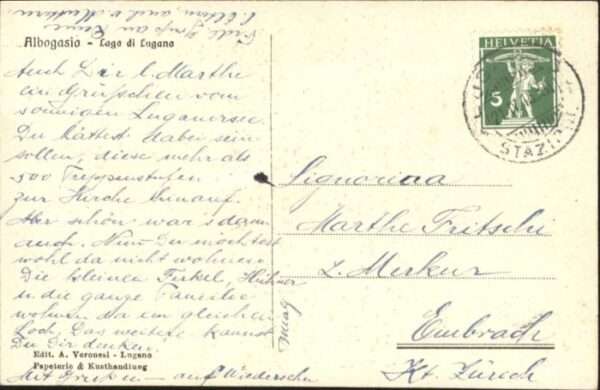 Fredl. Gruss an Deine
l. Eltern, auch v. Mutter
Albogasio - Lago di Lugano
Auch Dir l. Marthe
ein Grüsschen vom
sonnigen Luganersee.
Du hättest dabei sein
sollen, diese mehr als
500 Treppenstufen
zur Kirche hinauf.
Aber schön war's dann
auch. Nur Du möchtest
wohl da nicht wohnen.
Die kleinen Ferkel, Hühner
u. die ganze Familie
wohnen da im gleichen
Loch. Das weitere kannst
Du Dir denken.
Edit. A. Veronesi - Lugano
Papeterie & Kusthandlung
auf Wiedersehn
HELVETIA
5
STAZ.
Signorina
Marthe Fritschi
z. Merkur
Embrach
Kt. Zürich